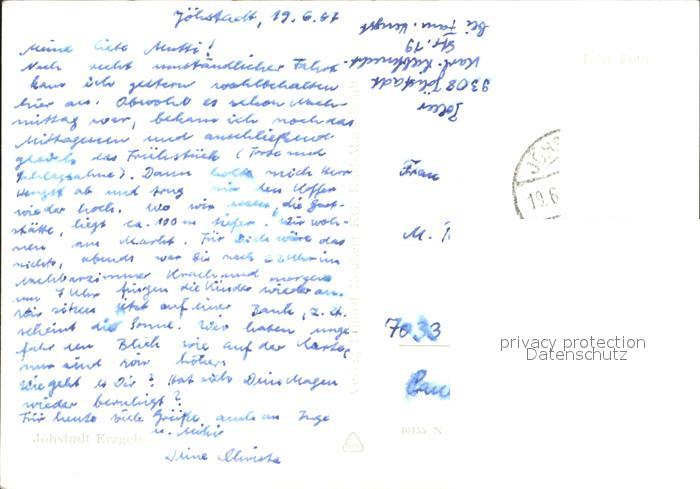 Jöhstadt, 19.6.
Meine liebe Mutti!
Nach recht umständlicher Fahrt
kam ich gestern wohlbehalten
hier an. Obwohl es schon Nach-
mittag war, bekam ich noch das
Mittagessen und anschließend
gleich das Frühstück (Torte und
Schlagsahne). Dann holte mich Herr
Hengst ab und trug mir den Koffer
wieder hoch. Wo wir essen, die Gast-
stätte, liegt ca. 100 m tiefer. Wir woh-
nen am Markt. Für Dich wäre das
nichts, abends war bis nach 22 Uhr im
Nachbarzimmer Krach und morgens
um 7 Uhr fingen die Kinder wieder an.
Wir sitzen jetzt auf einer Bank, z. Zt.
scheint die Sonne. Wir haben unge-
fähr den Blick wie auf der Karte,
nur sind wir höher.
Wie geht es Dir? Hat sich Dein Magen
wieder beruhigt?
Für heute viele Grüße auch an Inge
u. 
Deine Christa
Jöhstadt Erzgeb.
bei Fam. Hengst
Karl-Liebknecht-
Str. 19
9308 Jöhstadt
Echt Foto
Frau
M.
7033
JÖHS
19.6
privacy protection
Datenschutz